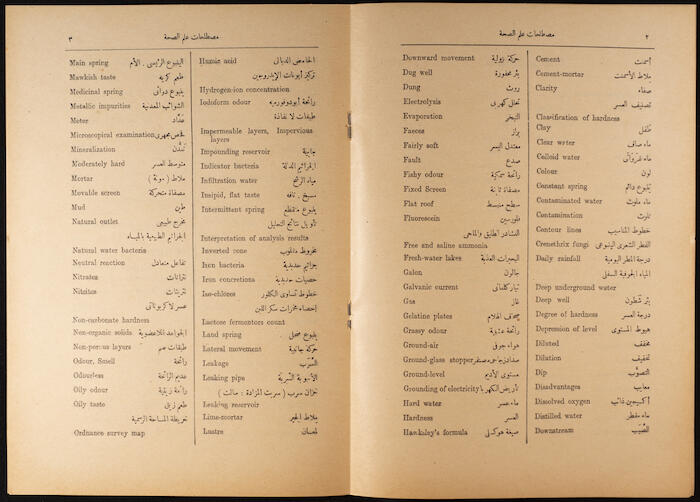 ٢ مصطلحات علم الصحة
Cement أسمنت
Cement-mortar ملاط الأسمنت
Clarity صفاء
تصنيف العسر
Classification of hardness
Clay
Clear water ماء صاف
Colloid water
Colour لون
Constant spring ينبوع دائم
Contaminated water ماء ملوث
Contamination تلوث
Contour lines خطوط المناسيب
Crenethrix fungi
Daily rainfall درجة المطر اليومية
المياه الجوفية السفلى
Deep underground water
Deep well
Degree of hardness درجة العسر
Depression of level هبوط المستوى
Diluted مخفف
Dilution تخفيف
Dip
Disadvantages معايب
Dissolved oxygen أكسجين ذائب
Distilled water ماء مقطر
Downstream
Downward movement حركة نزولية
Dug well بئر محفورة
Dung روث
Electrolysis تحلل كهربى
Evaporation التبخير
Faeces براز
Fairly soft معتدل اليسر
Fault صدع
Fishy odour رائحة سمكية
Fixed Screen مصفاة ثابتة
Flat roof سطح منبسط
Fluorescein فلورسين
النشادر الطليق والملحى
Free and saline ammonia
Fresh-water lakes البحيرات العذبة
Galon جالون
Galvanic current تيار كلفانى
Gas غاز
Gelatine plates صحاف الهلام
Grassy odour رائحة عشبية
Ground-air هواء جوفى
Ground-glass stopper
Ground-level مستوى الأديم
Grounding of electricity
Hard water ماء عسر
Hardness العسر
Hawksley's formula صيغة هوكسلى
مصطلحات علم الصحة ٣
Humic acid الحامض الدبالى
تركيز أيونات الإيدروجين
Hydrogen-ion concentration
Iodoform odour رائحة أيودوفورمية
طبقات لا نفاذة
Impermeable layers, Impervious
layers
Impounding reservoir جابية
Indicator bacteria الجراثيم الدالة
Infiltration water مياه الرشح
Insipid, flat taste مسيخ . تافه
Intermittent spring ينبوع متقطع
تأويل نتائج التحليل
Interpretation of analysis results
Inverted cone مخروط مقلوب
Iron bacteria جراثيم حديدية
Iron concretions حصيات حديدية
Iso-chlores خطوط تساوى الكلور
إحصاء مخمرات سكر اللبن
Lactose fermentors count
Land spring ينبوع ضحل
Lateral movement حركة جانبية
Leakage السرب
Leaking pipe الأنبوبة السربة
خزان سرب ( سربت المزادة : سالت )
Leaking reservoir
Lime-mortar ملاط الجير
Lustre لمعان
Main spring الينبوع الرئيسى . الأم
Mawkish taste طعم كريه
Medicinal spring ينبوع دوائى
Metallic impurities الشوائب المعدنية
Meter عداد
Microscopical examination فحص مجهرى
Mineralization تمعدن
Moderately hard متوسط العسر
Mortar ملاط ( مونة )
Movable screen مصفاة متحركة
Mud طين
Natural outlet مخرج طبيعى
الجراثيم الطبيعية بالمياه
Natural water bacteria
Neutral reaction تفاعل متعادل
Nitrates نترات
Nitrites نتريتات
عسر لا كربوناتى
Non-carbonate hardness
Non-organic solids الجوامد اللاعضوية
Non-porous layers طبقات صم
Odour, Smell رائحة
Odourless عديم الرائحة
Oily odour رائحة زيتية
Oily taste طعم زيتى
خريطة المساحة الرسمية
Ordnance survey map